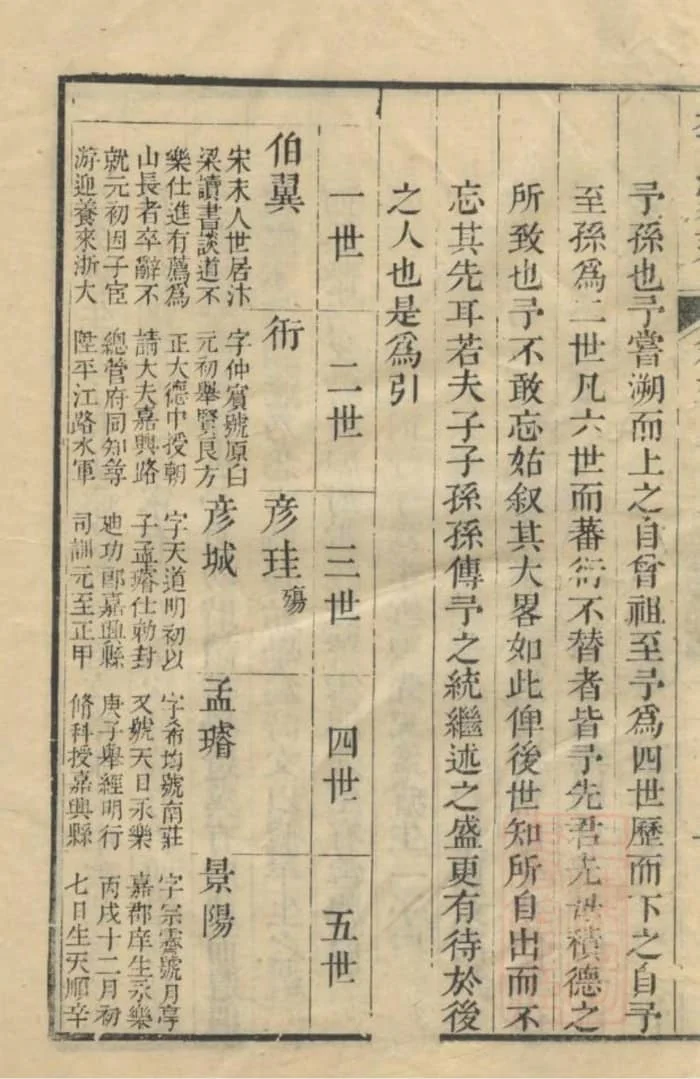 予孫也予嘗溯而上之自曾祖至予為四世歷而下之自予
至孫為二世凡六世而蕃衍不替者皆予先君先世積德之
所致也予不敢忘姑叙其大畧如此俾後世知所自出而不
忘其先耳若夫子子孫孫傳予之統繼述之盛更有待於後
之人也是為引
一世
二世
三世
四世
五世
伯翼
宋末人世居汴
梁讀書談道不
樂仕進有薦為
山長者卒辭不
就元初因子宦
游迎養來浙大
衍
字仲賓號原白
元初舉賢良方
正大德中授朝
請大夫嘉興路
總管府同知尋
陞平江路水軍
彥珪
殤
彥城
字天道明初以
子孟璿仕勅封
迪功郎嘉興縣
司訓元至正甲
孟璿
字希均號南莊
又號天日永樂
庚子舉經明行
脩科授嘉興縣
景陽
字宗靈號月亭
嘉郡庠生永樂
丙戌十二月初
七日生天順辛